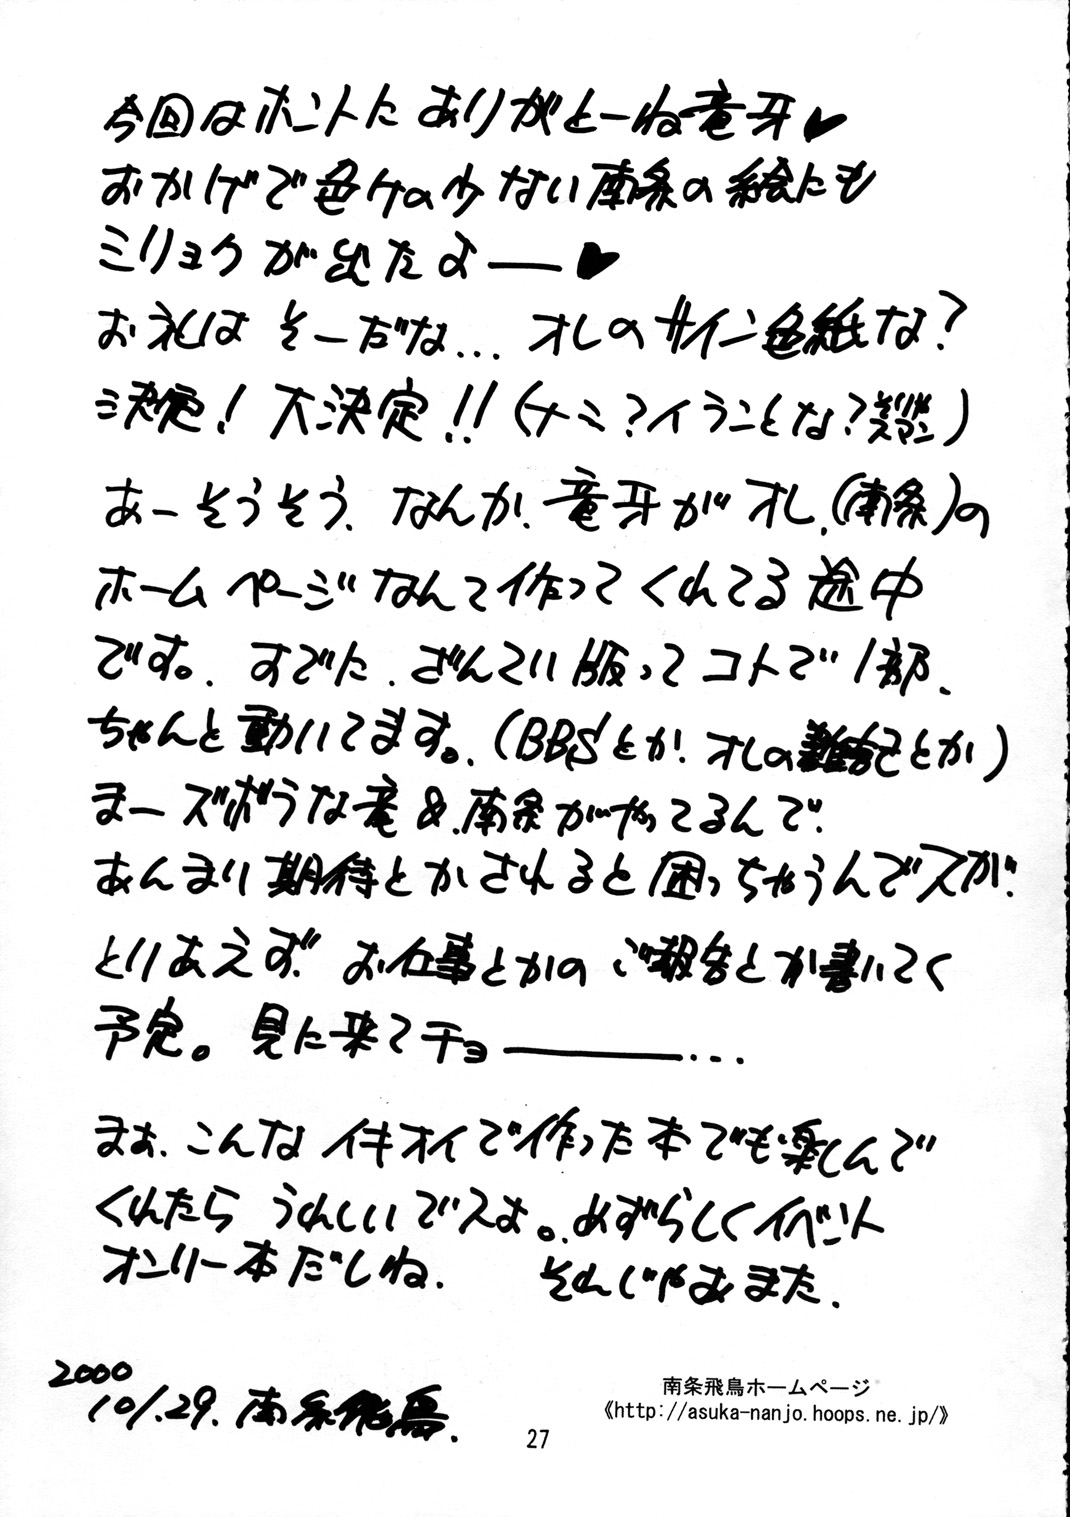 今回はホントにありがとーね竜牙♥
おかげで色ケの少ない南条の絵にも
ミリョクが出たよ——♥
お礼はそーだな...オレのサイン色紙な?
決定!大決定!!(ナミ?イランことな?そりゃスマン)
あーそうそう、なんか、竜牙がオレ、(南条)の
ホームページなんて作ってくれてる途中
です。すでに、ざんてい版ってコトで1部、
ちゃんと動いてます。(BBSとか!オレの雑記とか)
まーズボラな竜&南条がやってるんで、
あんまり期待とかされると困っちゃうんでスが、
とりあえず、お仕事とかのご報告とか書いてく
予定。見に来てチョ————...
まぁ、こんなイキオイで作った本でも楽しんで
くれたらうれしいでスよ。めずらしくイベント
オンリー本だしね.それじゃあまた.
2000
10/.29.南条飛鳥.
南条飛鳥ホームページ
《http://asuka-nanjo.hoops.ne.jp/》
27